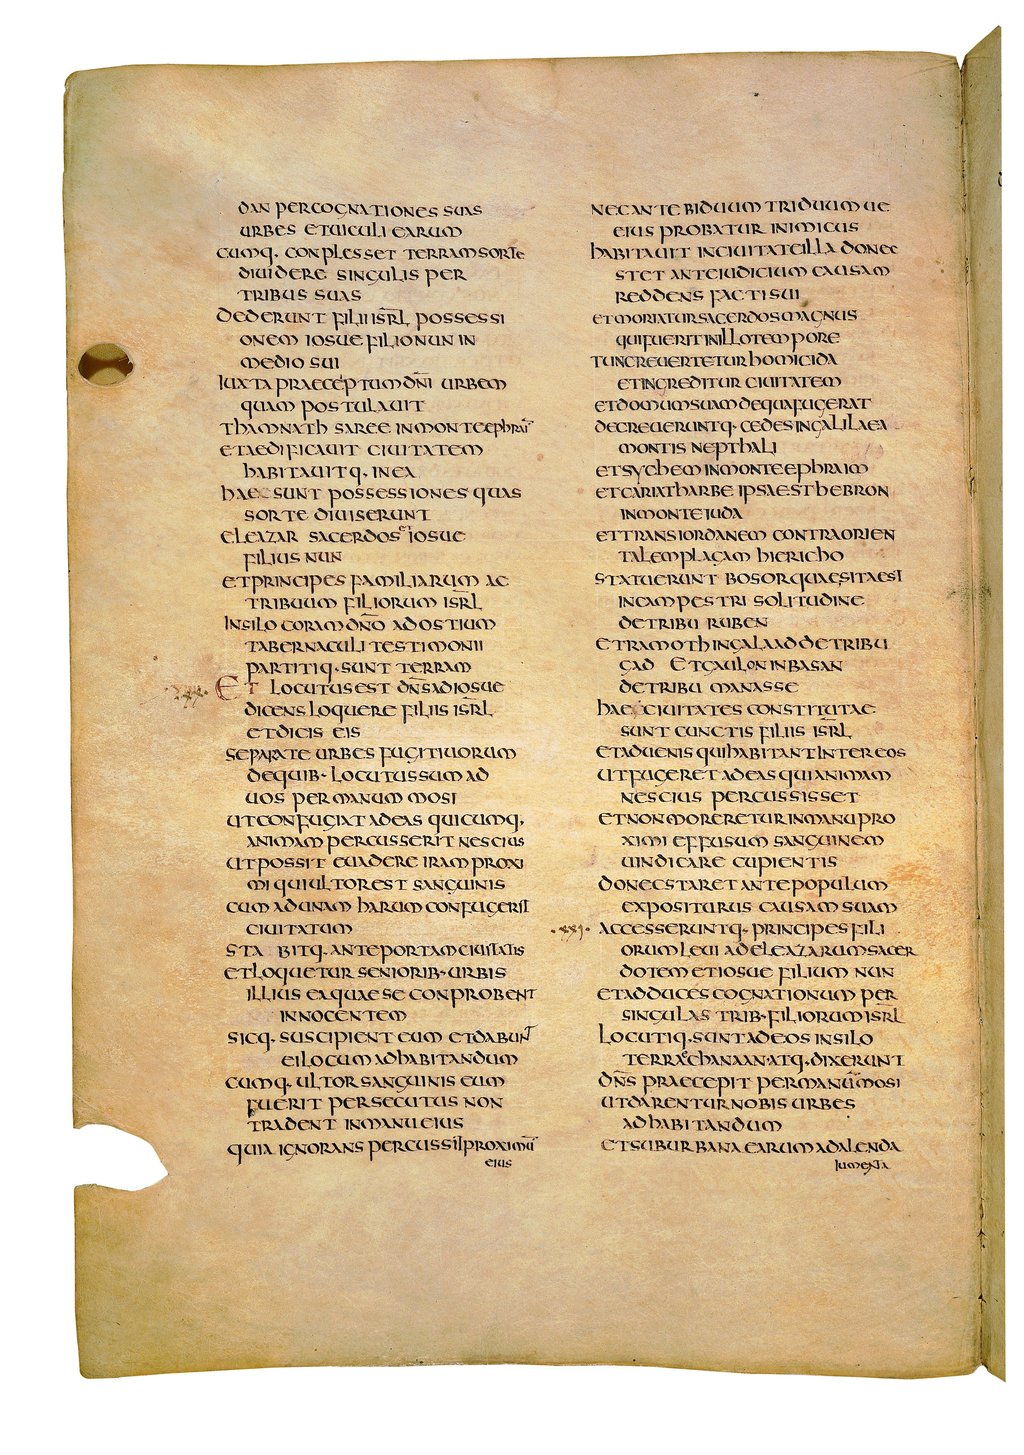 DAN PERCOGNATIONES SUAS
URBES ETUICULI EARUM
CUMQ· CONPLESSET TERRAMSORTE
DIUIDERE SINGULIS PER
TRIBUS SUAS
DEDERUNT FILIIISRL POSSESSI
ONEM IOSUEFILIONUN IN
MEDIO SUI
IUXTAPRAECEPTUMDNI URBEM
QUAM POSTULAUIT
THAMNATH SAREE INMONTEEPHRAI
ETAEDIFICAUIT CIUITATEM
HABITAUITQ· INEA
HAE SUNT POSSESSIONES QUAS
SORTE DIUISERUNT
ELEAZAR SACERDOS ET IOSUE
FILIUS NUN
ETPRINCIPES FAMILIARUM AC
TRIBUUM FILIORUM ISRL
INSILO CORAM DNO ADOSTIUM
TABERNACULI TESTIMONII
PARTITIQ·SUNT TERRAM
ET LOCUTUSEST DNSADIOSUE
DICENSLOQUERE FILIIS ISRL
ETDICIS EIS
SEPARATE URBES FUGITIUORUM
DEQUIB· LOCUTUSSUM AD
UOS PERMANUM MOSI
UTCONFUGIAT ADEAS QUICUMQ·
ANIMAM PERCUSSERIT NESCIUS
UTPOSSIT EUADERE IRAMPROXI
MI QUIULTOREST SANGUINIS
CUM ADUNAM HARUM CONFUGERIT
CIUITATUM
STA BITQ· ANTEPORTAMCIUITATIS
ETLOQUETUR SENIORIB· URBIS
ILLIUS EAQUAESE CONPROBENT
INNOCENTEM
SICQ· SUSCIPIENT EUM ETDABUNT
EILOCUMADHABITANDUM
CUMQ· ULTORSANGUINIS EUM
FUERIT PERSECUTUS NON
TRADENT INMANUEIUS
QUIA IGNORANS PERCUSSITPROXIMU
EIUS
NECANTEBIDUUMTRIDUUMUE
EIUS PROBATUR INIMICUS
HABITAUIT INCIUITATEILLA DONEC
STET ANTEIUDICIUM CAUSAM
REDDENS FACTISUI
ETMORIATURSACERDOSMAGNUS
QUIFUERITINILLOTEMPORE
TUNCREUERTETURHOMICIDA
ETINGREDITUR CIUITATEM
ETDOMUMSUAMDEQUAFUGERAT
DECREUERUNTQ· CEDESINGALILAEA
MONTIS NEPTHALI
ETSYCHEMINMONTEEPHRAIM
ETCARIATHARBE IPSAESTHEBRON
INMONTEIUDA
ETTRANSIORDANEM CONTRAORIEN
TALEMPLAGAM HIERICHO
STATUERUNT BOSORQUAESITAEST
INCAMPESTRI SOLITUDINE
DETRIBU RUBEN
ETRAMOTHINGALAADDETRIBU
GAD ETGAULONINBASAN
DETRIBU MANASSE
HAE CIUITATES CONSTITUTAE
SUNT CUNCTIS FILIIS ISRL
ETADUENIS QUIHABITANTINTEREOS
UTFUGERET ADEAS QUIANIMAM
NESCIUS PERCUSSISSET
ETNONMORERETURINMANUPRO
XIMI EFFUSUM SANGUINEM
UINDICARE CUPIENTIS
DONECSTARETANTEPOPULUM
EXPOSITURUS CAUSAMSUAM
·XXI· ACCESSERUNTQ· PRINCIPESFILI
ORUMLEUI ADELEAZARUMSACER
DOTEMETIOSUE FILIUM NUN
ETADDUCES COGNATIONUM PER
SINGULAS TRIB·FILIORUMISRL
LOCUTIQ·SUNTADEOS INSILO
TERRAECHANAAN·ATQ·DIXERUNT
DNS PRAECEPIT PERMANUMOSI
UTDARENTURNOBIS URBES
ADHABITANDUM
ETSUBURBANAEARUMADALENDA
IUMENTA